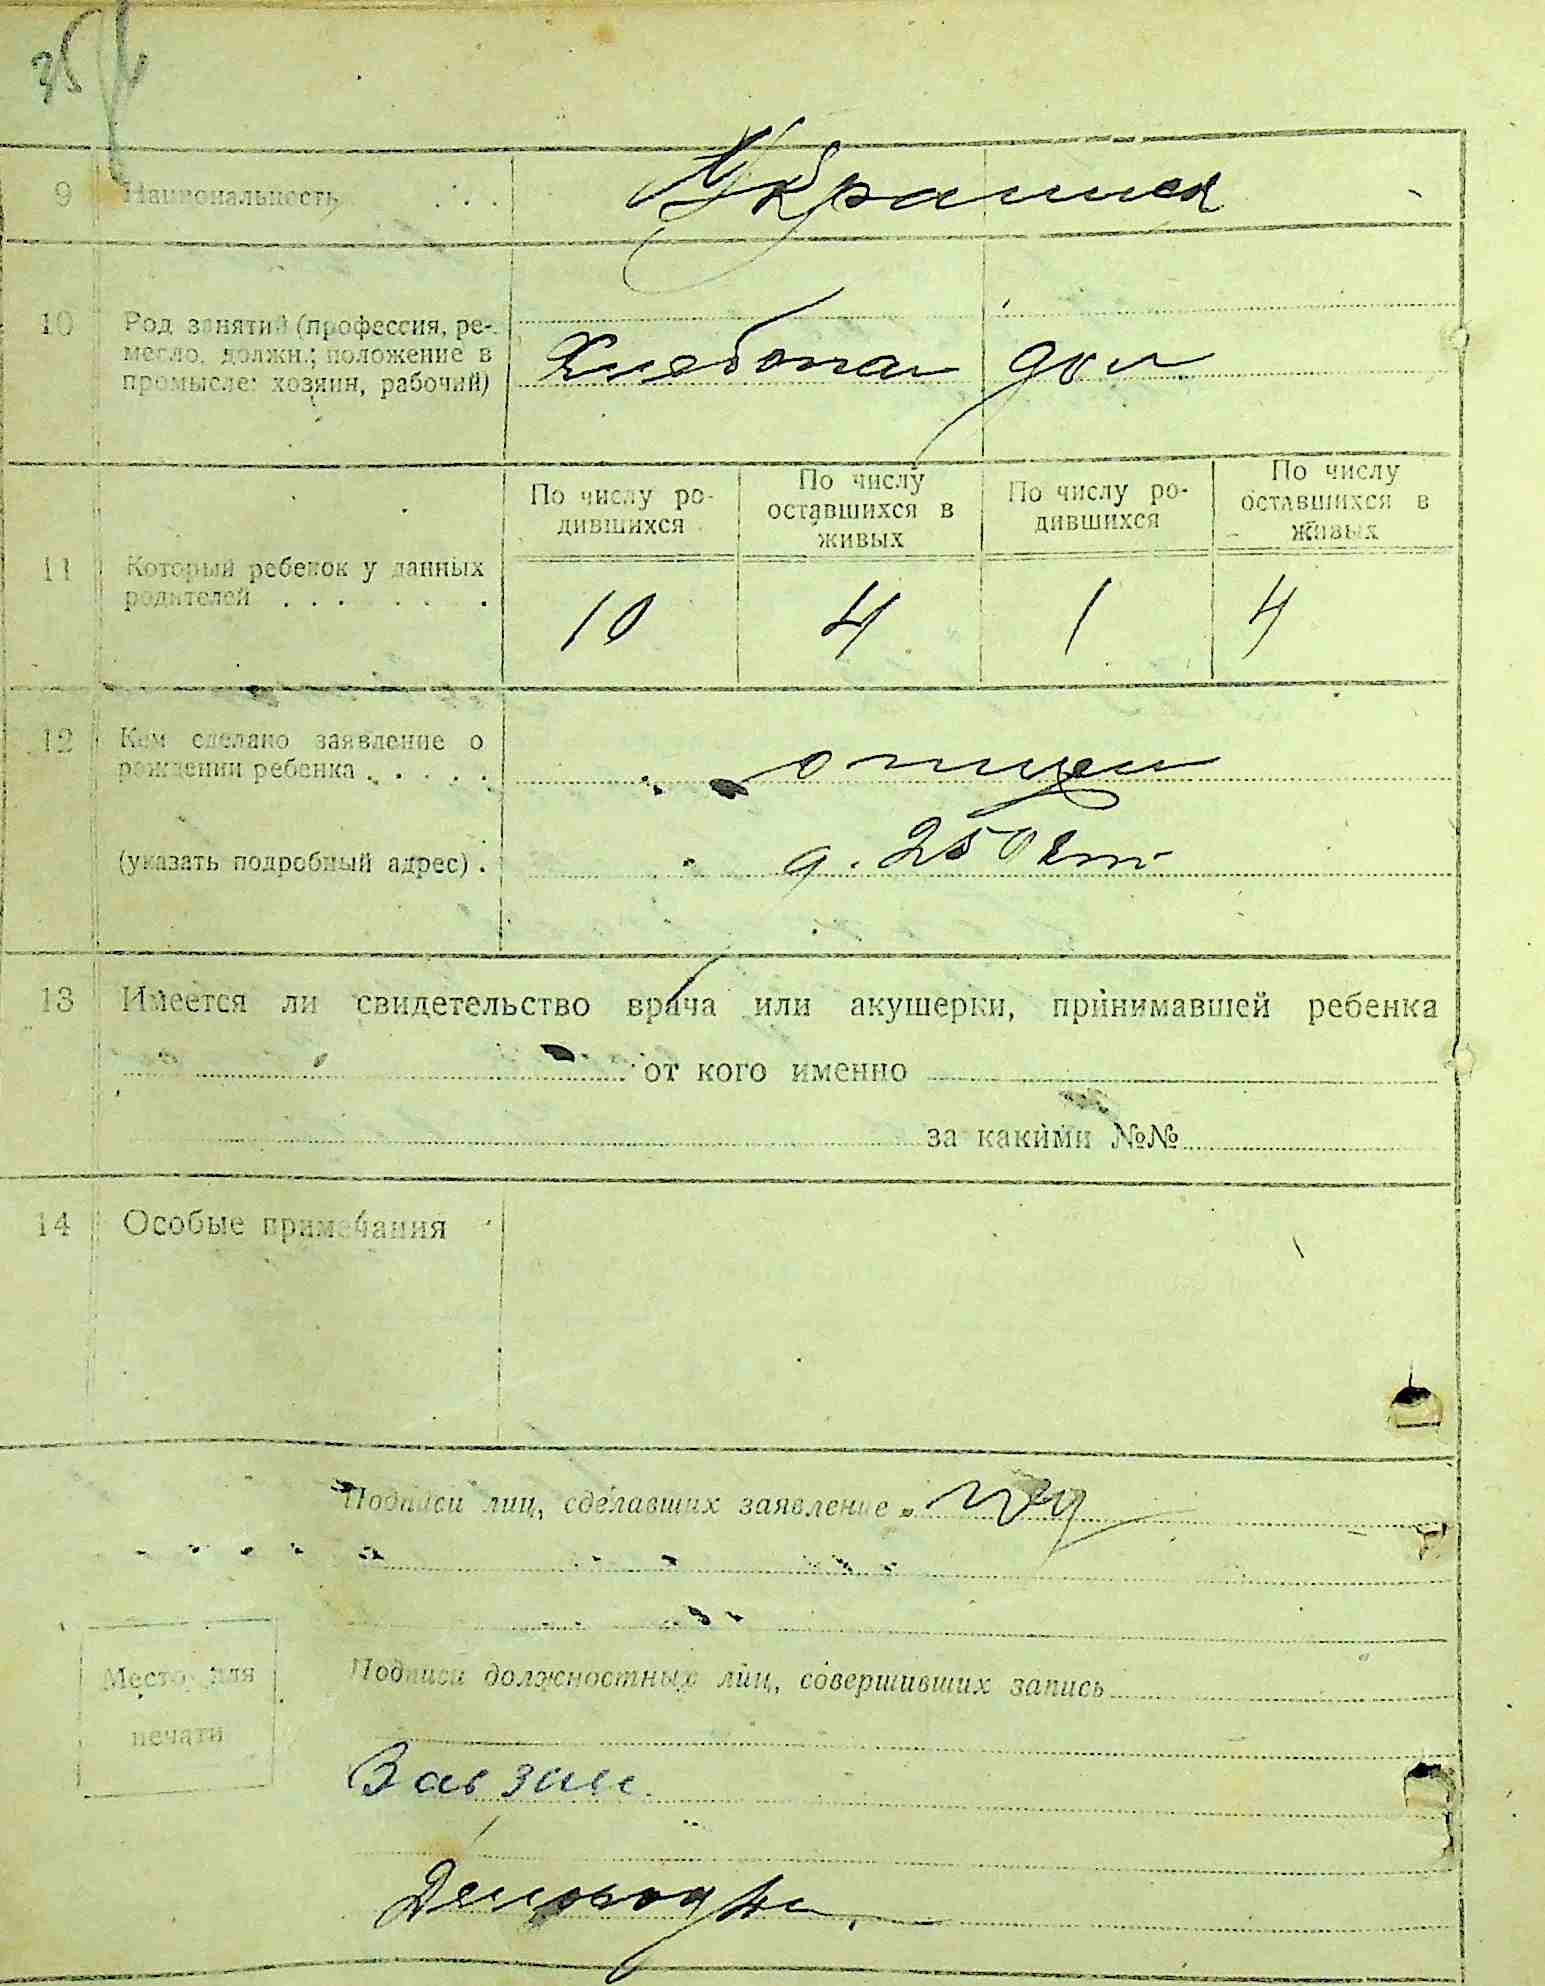 35
9 Национальность . . . Украинск
10 Род занятий (профессия, ре-
месло, должн.; положение в
промысле: хозяин, рабочий)
Хлебопаш дом
11 Который ребенок у данных
родителей . . . . . . .
По числу ро-
дившихся
По числу
оставшихся в
живых
По числу ро-
дившихся
По числу
оставшихся в
живых
10 4 1 4
12 Кем сделано заявление о
рождении ребенка . . . . . отцем
(указать подробный адрес) . д. 250
13 Имеется ли свидетельство врача или акушерки, принимавшей ребенка
от кого именно
за какими №№
14 Особые примечания
Подписи лиц, сделавших заявление
Место для
печати
Подписи должностных лиц, совершивших запись
Завзаги.